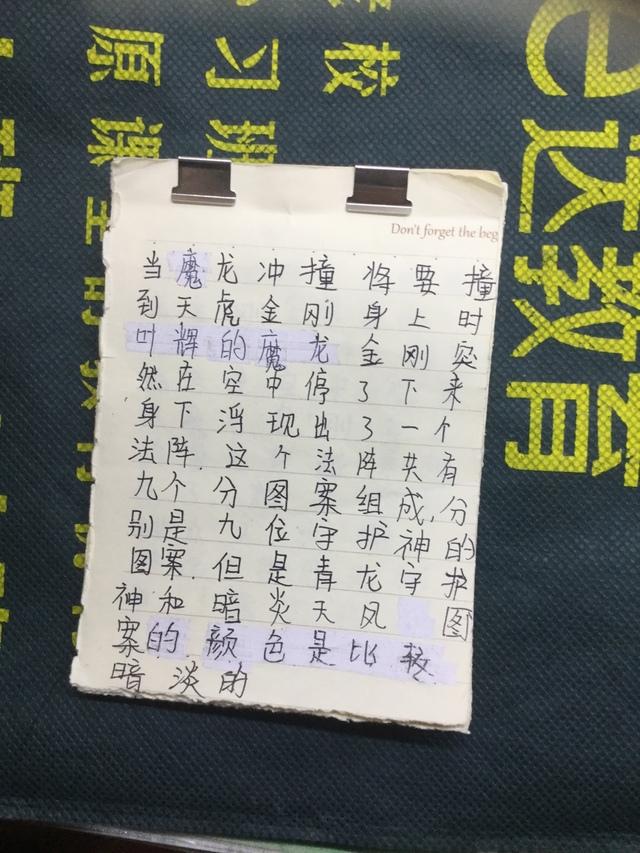 Don't forget the beg
当魔龙冲撞将要撞
到天虎金刚身上时
叶辉的魔龙金刚突
然在空中停了下来
身下浮现出了一个
法阵.这个法阵共有
九个分图案组成,分
别是九位守护神的
图案.但是青龙守护
神和暗炎天凤图
案的颜色是比较
暗淡的
e达教育
习班
原课堂